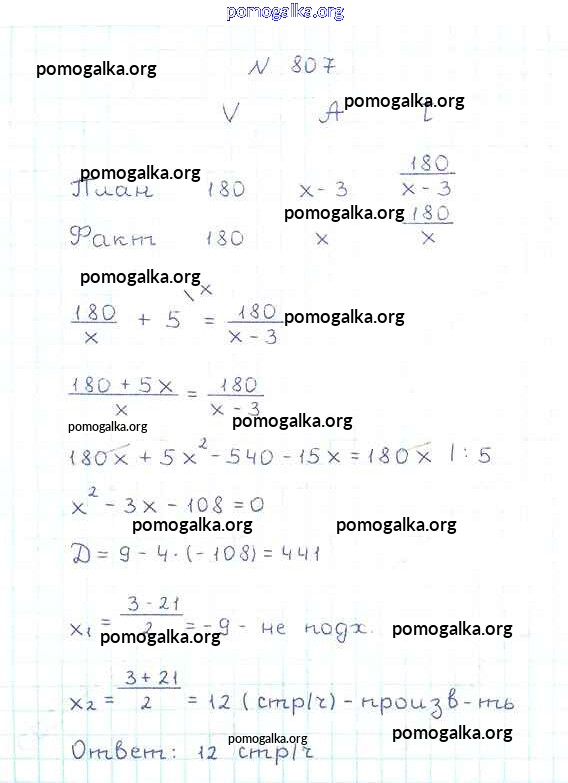 pomogalka.org
pomogalka.org
N 807
V A t
pomogalka.org
pomogalka.org
План 180 x - 3 180/(x - 3)
pomogalka.org
Факт 180 x 180/x
pomogalka.org
180/x + 5 \x = 180/(x - 3)
pomogalka.org
(180 + 5x)/x = 180/(x - 3)
pomogalka.org
pomogalka.org
180x + 5x² - 540 - 15x = 180x | : 5
x² - 3x - 108 = 0
pomogalka.org pomogalka.org
Д = 9 - 4·(-108) = 441
x₁ = (3 - 21)/2 = -9 - не подх.
pomogalka.org pomogalka.org
x₂ = (3 + 21)/2 = 12 (стр/ч) - произв-ть
pomogalka.org
pomogalka.org
Ответ: 12 стр/ч